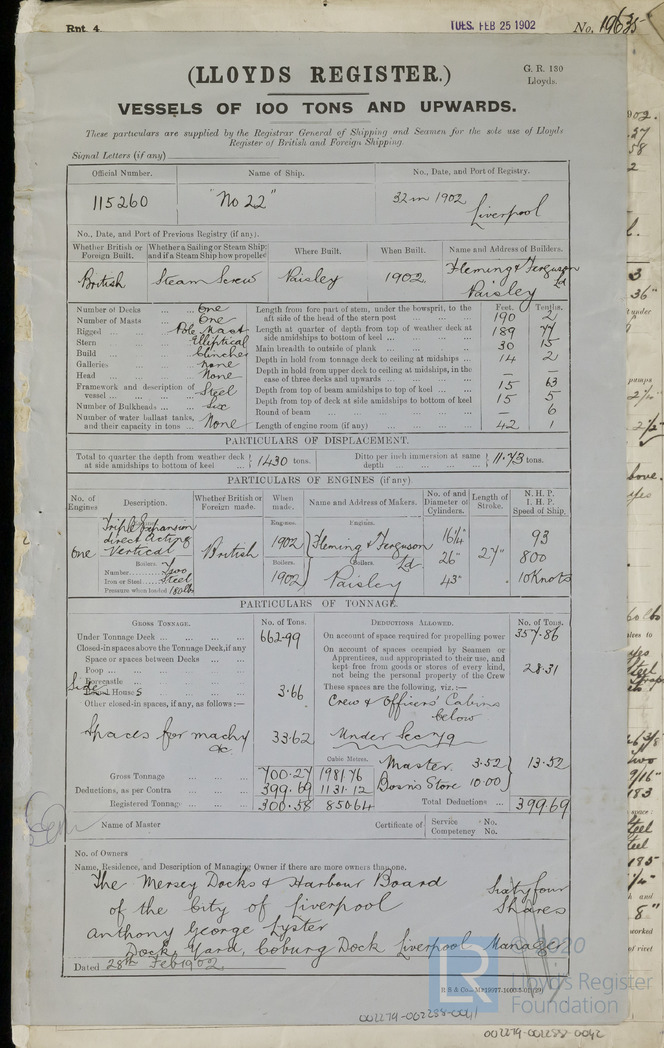 Rpt. 4.
TUES. FEB 25 1902
No. 19635
(LLOYDS REGISTER.)
G. R. 130
Lloyds.
VESSELS OF 100 TONS AND UPWARDS.
These particulars are supplied by the Registrar General of Shipping and Seamen for the sole use of Lloyds
Register of British and Foreign Shipping
Signal Letters (if any)
Official Number. Name of Ship. No., Date, and Port of Registry.
115260 "No 22" 32 in 1902 Liverpool
No., Date, and Port of Previous Registry (if any).
Whether British or Foreign Built. Whether a Sailing or Steam Ship; and if a Steam Ship how propelled Where Built. When Built. Name and Address of Builders.
British Steam Screw Paisley 1902 Fleming & Ferguson Ld Paisley
Feet. Tenths.
Number of Decks ... One
Number of Masts ... One
Rigged ... Pole Mast
Stern ... Elliptical
Build ... Clincher
Galleries ... None
Head ... None
Framework and description of vessel ... Steel
Number of Bulkheads ... Six
Number of water ballast tanks, and their capacity in tons ... None
Length from fore part of stem, under the bowsprit, to the aft side of the head of the stern post 190 2
Length at quarter of depth from top of weather deck at side amidships to bottom of keel ... 189 77
Main breadth to outside of plank ... 30 15
Depth in hold from tonnage deck to ceiling at midships ... 14 2
Depth in hold from upper deck to ceiling at midships, in the case of three decks and upwards ... — —
Depth from top of beam amidships to top of keel ... 15 63
Depth from top of deck at side amidships to bottom of keel 15 5
Round of beam ... — 6
Length of engine room (if any) ... 42 1
PARTICULARS OF DISPLACEMENT.
Total to quarter the depth from weather deck at side amidships to bottom of keel ... 1430 tons.
Ditto per inch immersion at same depth ... 11.73 tons.
PARTICULARS OF ENGINES (if any).
No. of Engines Description. Whether British or Foreign made. When made. Name and Address of Makers. No. of and Diameter of Cylinders. Length of Stroke. N. H. P. I. H. P. Speed of Ship.
Engines. Engines.
One Triple Expansion direct acting Vertical British 1902 Fleming & Ferguson Ld 16¼" 26" 43" 27" 93 800 10 Knots
Boilers. Boilers. Boilers.
Number Two 1902 Paisley
Iron or Steel Steel
Pressure when loaded 180 lb
PARTICULARS OF TONNAGE.
GROSS TONNAGE. No. of Tons. DEDUCTIONS ALLOWED. No. of Tons.
Under Tonnage Deck ... 662.99
Closed-in spaces above the Tonnage Deck, if any
Space or spaces between Decks ...
Poop ...
Forecastle ...
Side Houses 3.66
Other closed-in spaces, if any, as follows:—
Spaces for machy &c. 33.62
Gross Tonnage ... 700.27
Deductions, as per Contra ... 399.69
Registered Tonnage ... 300.58
Cubic Metres.
1981.76
1131.12
850.64
On account of space required for propelling power 357.86
On account of spaces occupied by Seamen or Apprentices, and appropriated to their use, and kept free from goods or stores of every kind, not being the personal property of the Crew 28.31
These spaces are the following, viz.:—
Crew & Officers' Cabins below
Under Sec 79
Master. 3.52
Bosn's Store 10.00 13.52
Total Deductions ... 399.69
Name of Master Certificate of Service No.
Competency No.
No. of Owners
Name, Residence, and Description of Managing Owner if there are more owners than one.
The Mersey Docks & Harbour Board Sixty four
of the City of Liverpool Shares
Anthony George Lyster
Dock Yard, Coburg Dock Liverpool Manager
Dated 28th Feb 1902
© 2020
LR
Lloyd's Register
Foundation
002279-002288-0041
002279-002288-0042